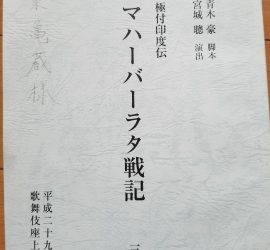 青木 豪 脚本
宮城 聰 演出
極付印度伝
マハーバーラタ戦記
平成二十九
歌舞伎座上
亀蔵様